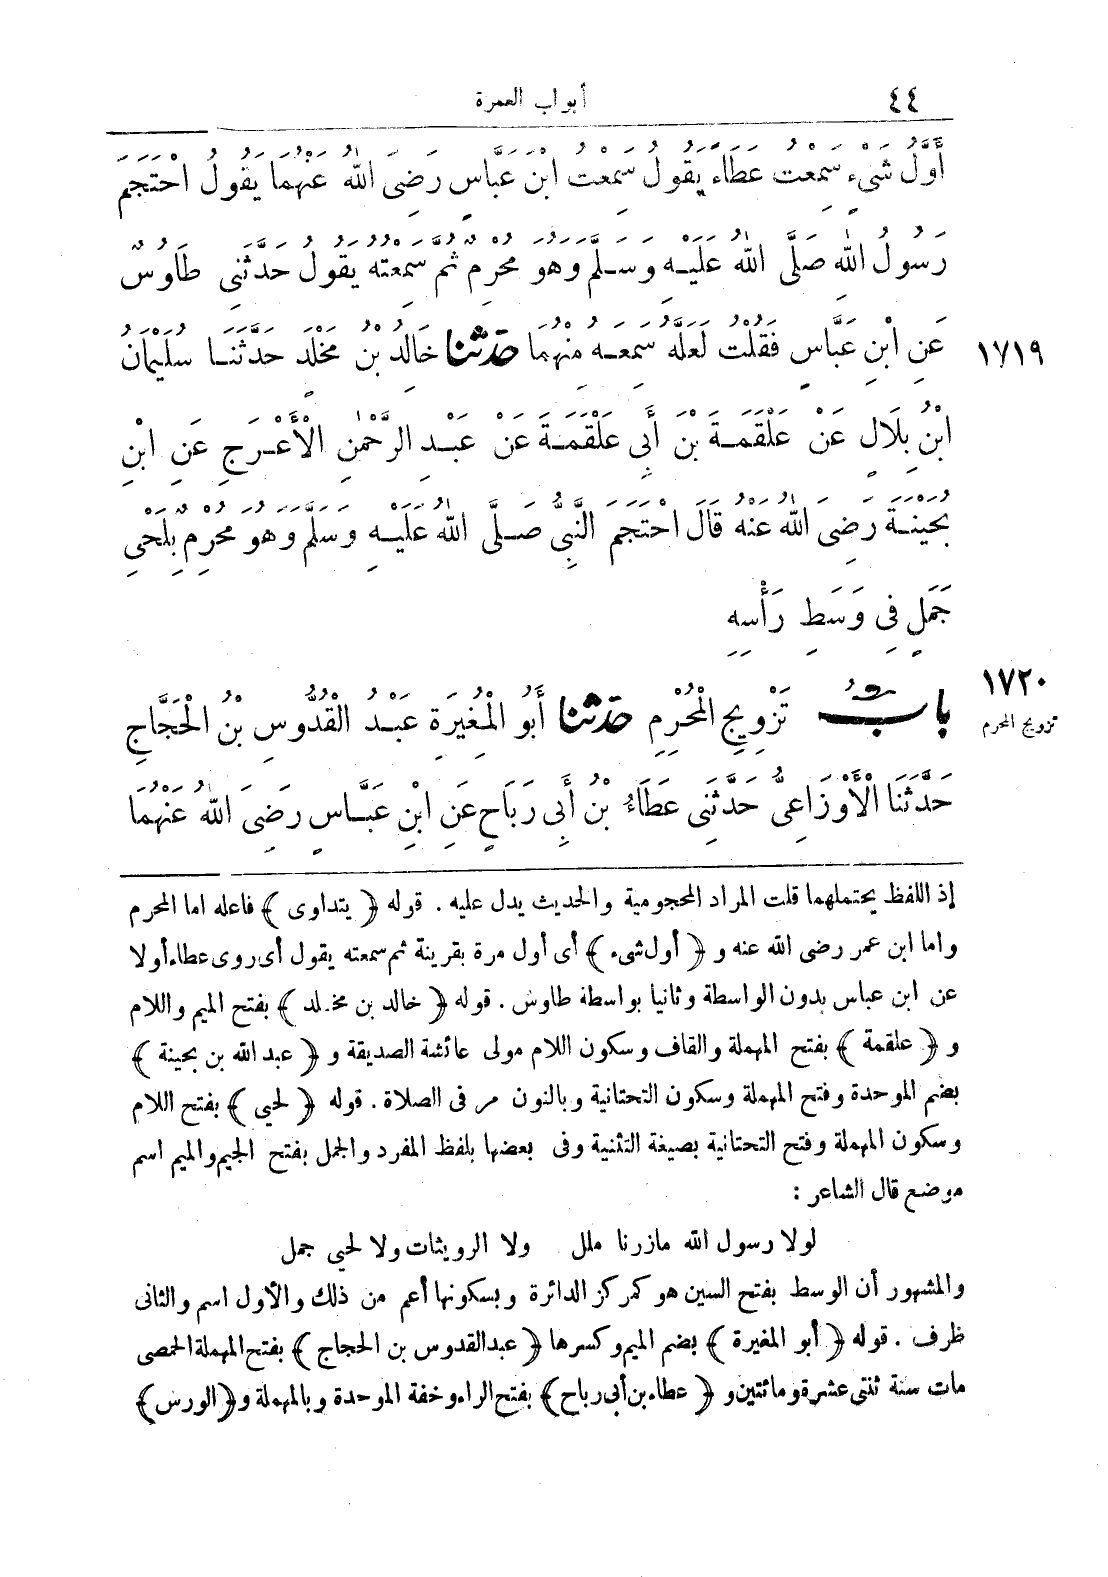 ٤٤ أبواب العمرة
أَوَّلُ شَىْءٍ سَمِعْتُ عَطَاءً يَقُولُ سَمِعْتُ ابْنَ عَبَّاسٍ رَضِىَ اللهُ عَنْهُمَا يَقُولُ احْتَجَمَ
رَسُولُ اللهِ صَلَّى اللهُ عَلَيْهِ وَسَلَّمَ وَهُوَ مُحْرِمٌ ثُمَّ سَمِعْتُهُ يَقُولُ حَدَّثَنِى طَاوُسٌ
١٧١٩ عَنِ ابْنِ عَبَّاسٍ فَقُلْتُ لَعَلَّهُ سَمِعَهُ مِنْهُمَا حَدَّثَنَا خَالِدُ بْنُ مَخْلَدٍ حَدَّثَنَا سُلَيْمَانُ
ابْنُ بِلَالٍ عَنْ عَلْقَمَةَ بْنِ أَبِى عَلْقَمَةَ عَنْ عَبْدِ الرَّحْمٰنِ الْأَعْرَجِ عَنِ ابْنِ
بُحَيْنَةَ رَضِىَ اللهُ عَنْهُ قَالَ احْتَجَمَ النَّبِىُّ صَلَّى اللهُ عَلَيْهِ وَسَلَّمَ وَهُوَ مُحْرِمٌ بِلَحْىِ
جَمَلٍ فِى وَسَطِ رَأْسِهِ
١٧٢٠ بَابُ تَزْوِيجِ الْمُحْرِمِ حَدَّثَنَا أَبُو الْمُغِيرَةِ عَبْدُ الْقُدُّوسِ بْنُ الْحَجَّاجِ
تزويج المحرم
حَدَّثَنَا الْأَوْزَاعِىُّ حَدَّثَنِى عَطَاءُ بْنُ أَبِى رَبَاحٍ عَنِ ابْنِ عَبَّاسٍ رَضِىَ اللهُ عَنْهُمَا
إذ اللفظ يحتملهما قلت المراد المحجومية والحديث يدل عليه . قوله ﴿ يتداوى ﴾ فاعله اما المحرم
واما ابن عمر رضى الله عنه و ﴿ أول شىء ﴾ أى أول مرة بقرينة ثم سمعته يقول أى روى عطاء أولا
عن ابن عباس بدون الواسطة وثانيا بواسطة طاوس . قوله ﴿ خالد بن مخلد ﴾ بفتح الميم واللام
و ﴿ علقمة ﴾ بفتح المهملة والقاف وسكون اللام مولى عائشة الصديقة و ﴿ عبد الله بن بحينة ﴾
بضم الموحدة وفتح المهملة وسكون التحتانية وبالنون مر فى الصلاة . قوله ﴿ لحيي ﴾ بفتح اللام
وسكون المهملة وفتح التحتانية بصيغة التثنية وفى بعضها بلفظ المفرد والجمل بفتح الجيم والميم اسم
موضع قال الشاعر :
لولا رسول الله مازرنا ملل ولا الرويثات ولا لحيي جمل
والمشهور أن الوسط بفتح السين هو كمركز الدائرة وبسكونها أعم من ذلك والأول اسم والثانى
ظرف . قوله ﴿ أبو المغيرة ﴾ بضم الميم وكسرها ﴿ عبد القدوس بن الحجاج ﴾ بفتح المهملة الحمصى
مات سنة ثنتى عشرة ومائتين و ﴿ عطاء بن أبى رباح ﴾ بفتح الراء وخفة الموحدة وبالمهملة و ﴿ الورس ﴾